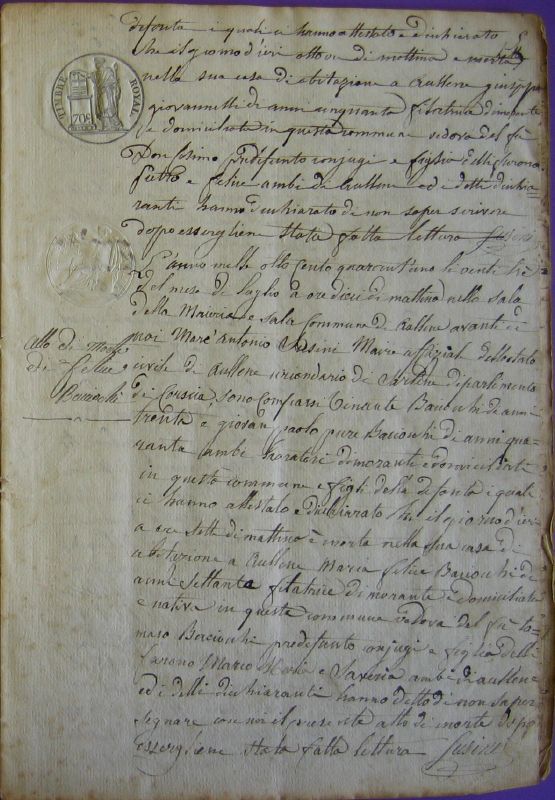 defonta i quali ci hanno attestato e dichiarato
che il giorno d'ieri otto di mattina è morta
nella sua casa di abitazione a Aullene
giovannetti di anni cinquanta filatrice dimorante
e domiciliata in questa commune vedova del fù
predefunto conjugi e figlia delli furono
e Felice ambi di Aullene ed i detti dichia-
ranti hanno dichiarato di non saper scrivere
dopo essergliene stata fatta lettura Susini
TIMBRE ROYAL
70c
L'anno mille otto cento quarant'uno li venti tre
del mese di luglio a ore dieci di mattino nella sala
della Mairia e sala Commune di Aullene avanti di
noi Marc'Antonio Susini Maire offizial dello stato
civile di Aullene circondario di Sartene dipartimento
di Corsica, sono comparsi Vincente Bacciochi di anni
trenta e giovan paolo pure Bacciochi di anni qua-
ranta ambi lavoratori dimoranti e domiciliati
in questa commune e figli della defonta i quali
ci hanno attestato e dichiarato che il giorno d'ieri
a ore sette di mattino è morta nella sua casa di
abitazione a Aullene Maria Felice Bacciochi di
anni settanta filatrice dimorante e domiciliata
e nativa in questa commune vedova del fù to-
maso Bacciochi predefunto conjugi e figlia delli
furono Marco Maria e Saveria ambi di aullene
ed i delli dichiaranti hanno detto di non saper
segnare con noi il presente atto di morte dopo
essergliene stata fatta lettura Susini
Atto di Morte
di Felice
Bacciochi